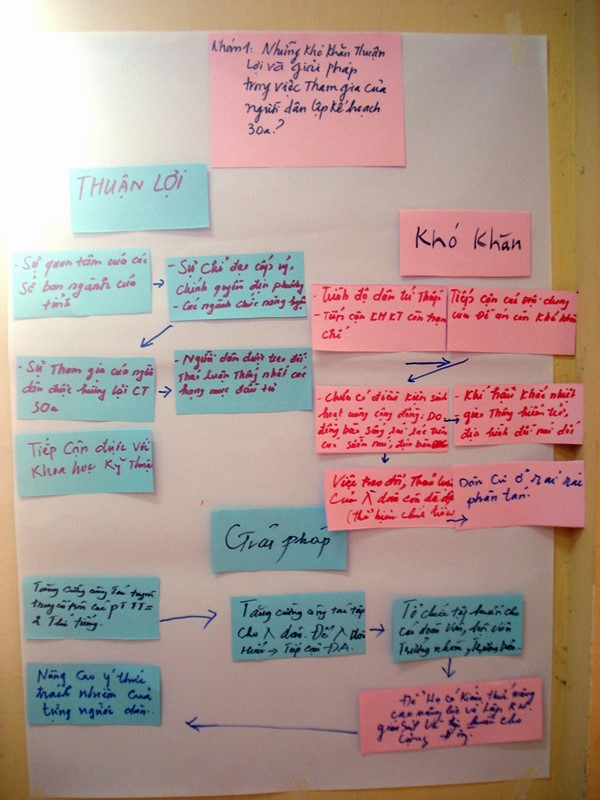 Nhóm 1: Những khó khăn Thuận
Lợi và giải pháp
trong việc Tham gia của
người dân lập kế hoạch
30a.?
THUẬN LỢI
- Sự quan tâm của các
Sở ban ngành của
tỉnh
- Sự chỉ đạo cấp ủy,
Chính quyền địa phương
- Các ngành chức năng huyện
- Sự Tham gia của người
dân được hưởng lợi CT
30a
- Người dân được trao đổi
Thảo luận Thống nhất các
hạng mục đầu tư
Tiếp Cận được với
Khoa học Kỹ Thuật
Khó Khăn
- Trình độ dân trí Thấp
- Tiếp cận KHKT còn hạn
chế
Tiếp cận các nội dung
của Đề án còn Khó Khăn
- Chưa có điều kiện sinh
hoạt cộng đồng. Do
đồng bào sống
các sườn núi, địa bàn
- Khí hậu khắc nhiệt
giao Thông hiểm trở,
địa hình đồi núi dốc
Việc trao đổi, Thảo luận
Của λ dân còn
(Thể hiện
Dân Cư ở rải rác
phân tán.
Giải pháp
Tăng cường công Tác tuyên
truyền trên các PTTT =
2 Thứ tiếng.
Tăng cường công tác tập
cho λ dân. Để λ dân
Hiểu → Tiếp cận ĐA.
Tổ chức tập huấn cho
các đoàn viên, hội viên
Trưởng nhóm,
Để Họ có kiến thức nâng
cao năng lực và lập KH
giám sát và cho
Cộng đồng.
Nâng Cao ý thức
trách nhiệm Của
từng người dân.